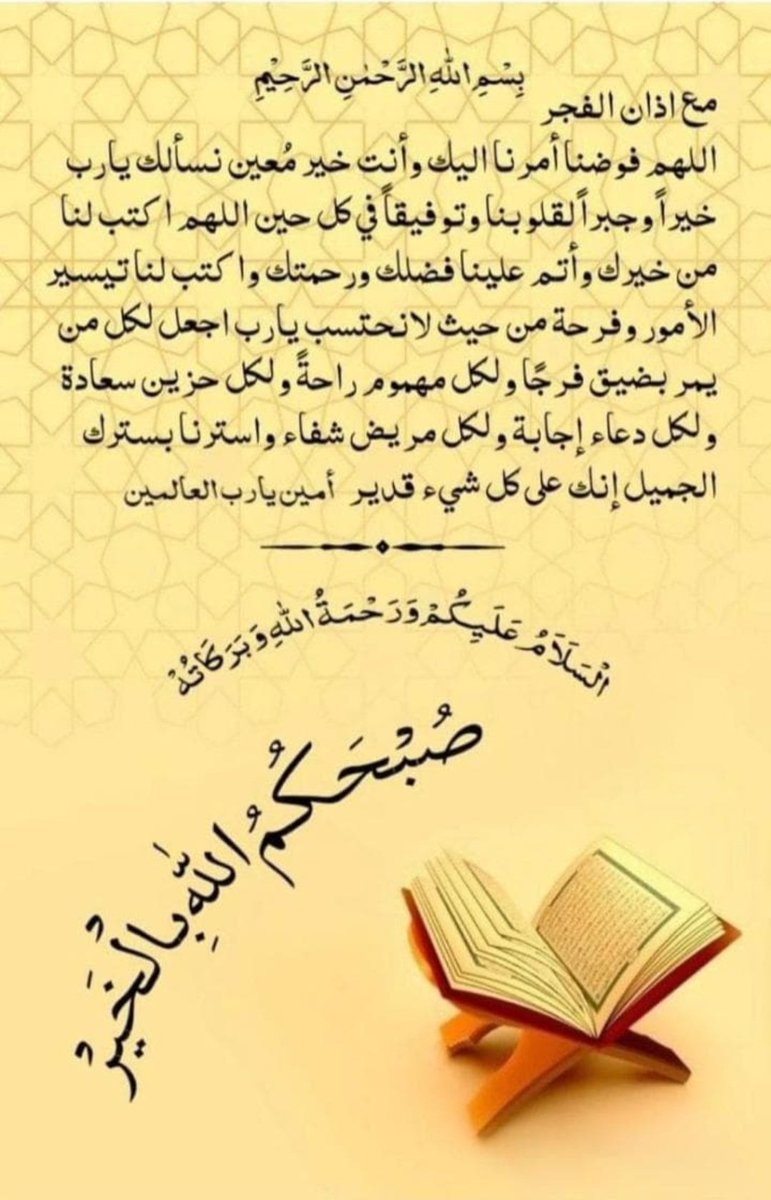 بِسْمِ اللهِ الرَّحْمٰنِ الرَّحِيْمِ
مع اذان الفجر
اللهم فوضنا أمرنا اليك وأنت خير مُعين نسألك يارب
خيراً وجبراً لقلوبنا وتوفيقاً في كل حين اللهم اكتب لنا
من خيرك وأتم علينا فضلك ورحمتك واكتب لنا تيسير
الأمور وفرحة من حيث لانحتسب يارب اجعل لكل من
يمر بضيق فرجًا ولكل مهموم راحةً ولكل حزين سعادة
ولكل دعاء إجابة ولكل مريض شفاء واسترنا بسترك
الجميل إنك على كل شيء قدير أمين يارب العالمين
الْسَلَامُ عَلَيِكُمْ وَرَحْمَةُ اللهِ وَبَرَكَاتُهْ
صُبْحَكُمُ اللَّهِ بِالْخَيرْ